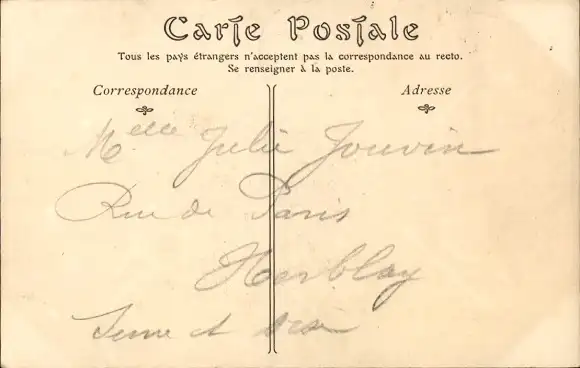 Carte Postale
Tous les pays étrangers n'acceptent pas la correspondance au recto.
Se renseigner à la poste.
Correspondance
Adresse
Melle Julie Jouvin
Rue de Paris
Herblay
Seine et Oise